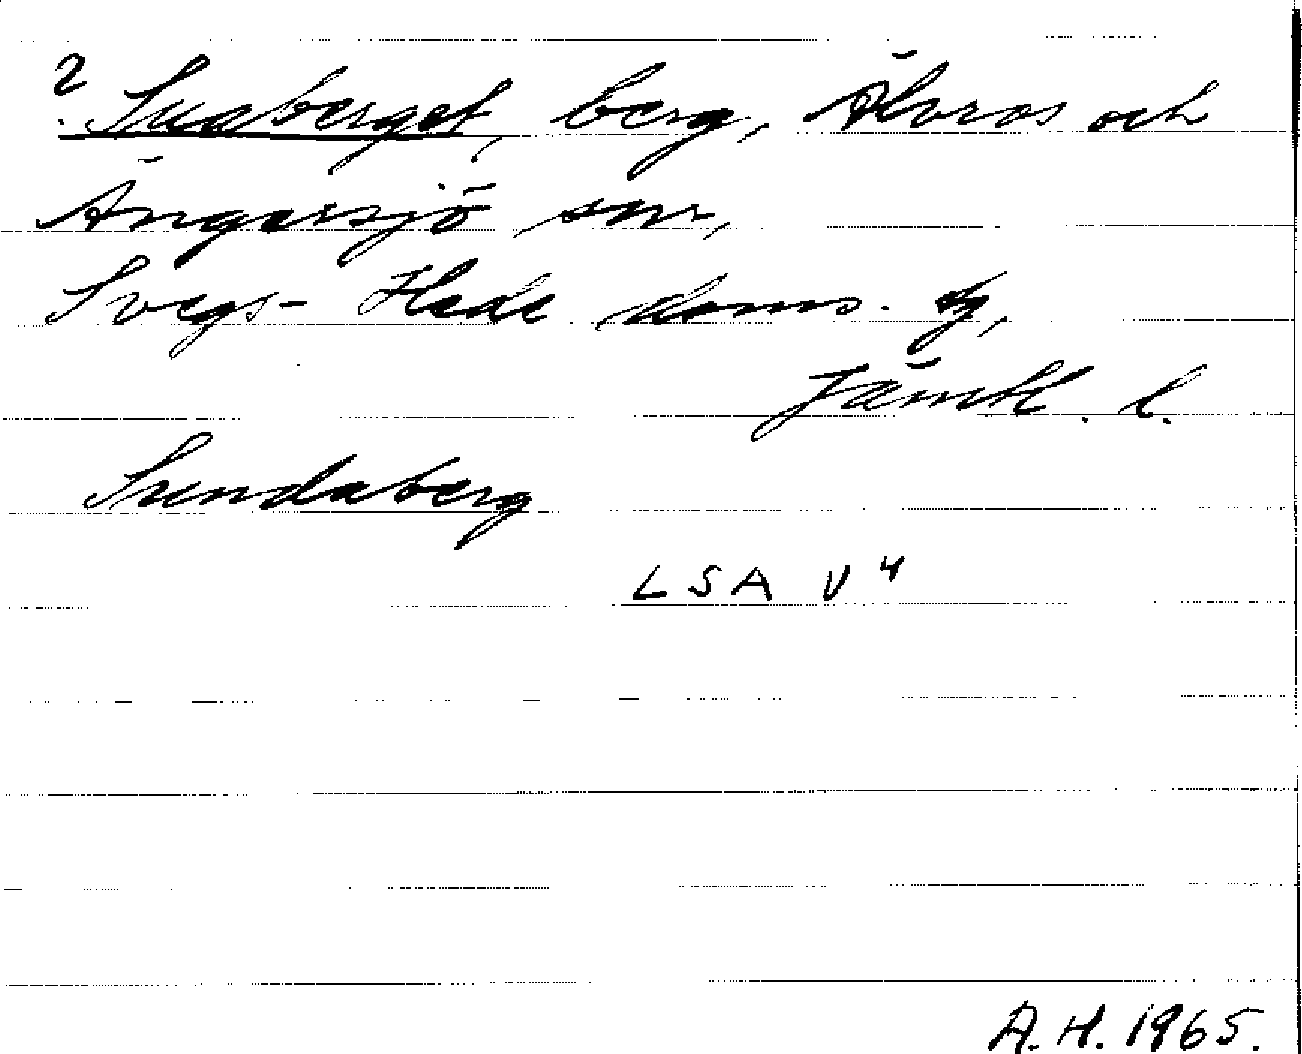 ? Suaberget, berg, Älvros och
Ängersjö snr,
Svegs- Hede doms. tg,
Jämtl. l.
Sundaberg
LSA V4
A. H. 1965.